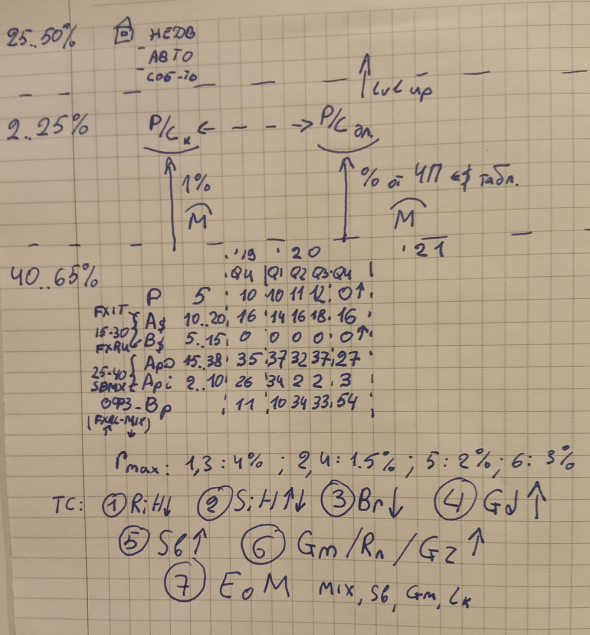 25..50% НЕДВ
- АВТО
- СОБ-ТЬ
Lvl up
2..25% Р/С к Р/С эл.
1% % от ЧП Табл.
М М
'19 '20 '21
40..65% Q4 Q1 Q2 Q3 Q4
Р 5 10 10 11 12 0↑
FXIT A$ 10..20 16 14 16 18 16
15-30
FXRU B$ 5..15 0 0 0 0 0↑
Apo 15..38 35 37 32 37 27
25-40
SBMX Api 2..10 26 34 2 2 3
ОФЗ- Bp 11 10 34 33 54
rmax: 1,3: 4% ; 2,4: 1.5% ; 5: 2% ; 6: 3%
ТС: ① RiH↓ ② SiH↑↓ ③ Br↓ ④ Gd↑
⑤ Sb↑ ⑥ Gm/Rn/Gz↑
⑦ EoM MIX, Sb, Gm, Lk